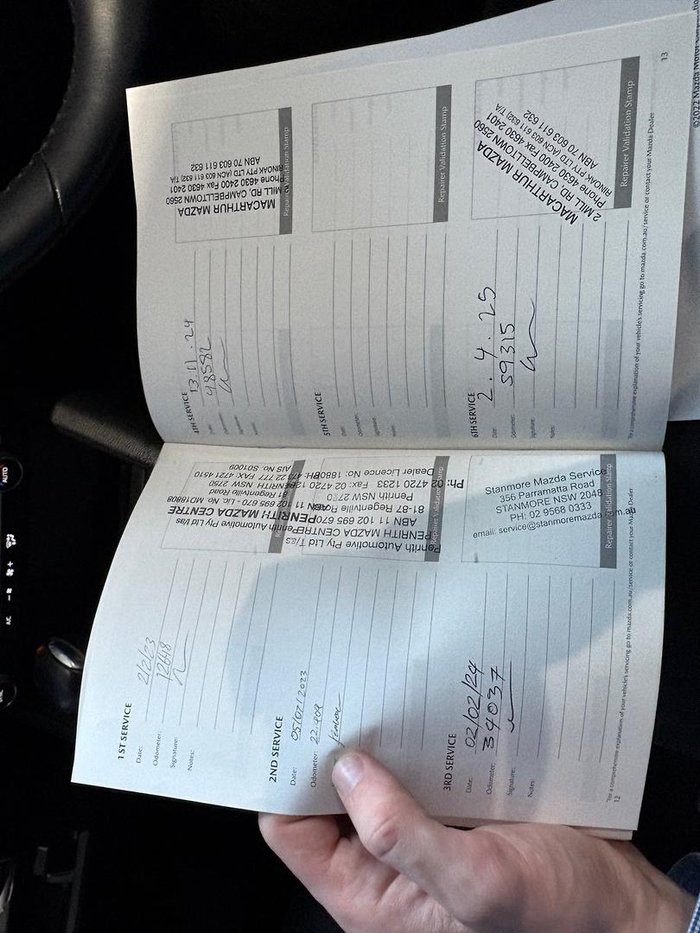 1ST SERVICE
Date: 2/2/23
Odometer: 12618
Signature:
Notes:
Penrith Automotive Pty Ltd t/as
PENRITH MAZDA CENTRE
Regentville Road
PENRITH NSW 2750
FAX: 4721 4510
AIS No. S01009
2ND SERVICE
Date: 05/07/2023
Odometer: 22,909
Penrith Automotive Pty Ltd T/as
PENRITH MAZDA CENTRE
ABN 11 102 695 670
81-87 Regentville Road
Penrith NSW 2750
Ph: 02 4720 1233 Fax: 02 4720
Dealer Licence No:
3RD SERVICE
Date: 02/02/24
Odometer: 34037
Signature:
Notes:
Stanmore Mazda Service
356 Parramatta Road
STANMORE NSW 2048
PH: 02 9568 0333
email: service@stanmoremazda.com.au
Repairer Validation Stamp
For a comprehensive explanation of your vehicle's servicing go to mazda.com.au/service or contact your Mazda Dealer
12
4TH SERVICE
Date: 13.11.24
Odometer: 48582
Signature:
Notes:
MACARTHUR MAZDA
2 MILL RD, CAMPBELLTOWN 2560
Phone 4630 2400 Fax 4630 2401
RINOAK PTY LTD (ACN 603 611 632) T/A
ABN 70 603 611 632
Repairer Validation Stamp
5TH SERVICE
Date:
Odometer:
Signature:
Notes:
Repairer Validation Stamp
6TH SERVICE
Date: 2.4.25
Odometer: 59315
Signature:
Notes:
MACARTHUR MAZDA
2 MILL RD, CAMPBELLTOWN 2560
Phone 4630 2400 Fax 4630 2401
RINOAK PTY LTD (ACN 603 611 632) T/A
ABN 70 603 611 632
Repairer Validation Stamp
For a comprehensive explanation of your vehicle's servicing go to mazda.com.au/service or contact your Mazda Dealer
13
©2022 Mazda Motor
AUTO
A/C